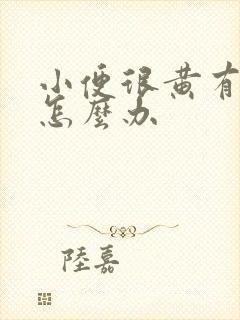 小便很黄有
怎麼办
陸嘉